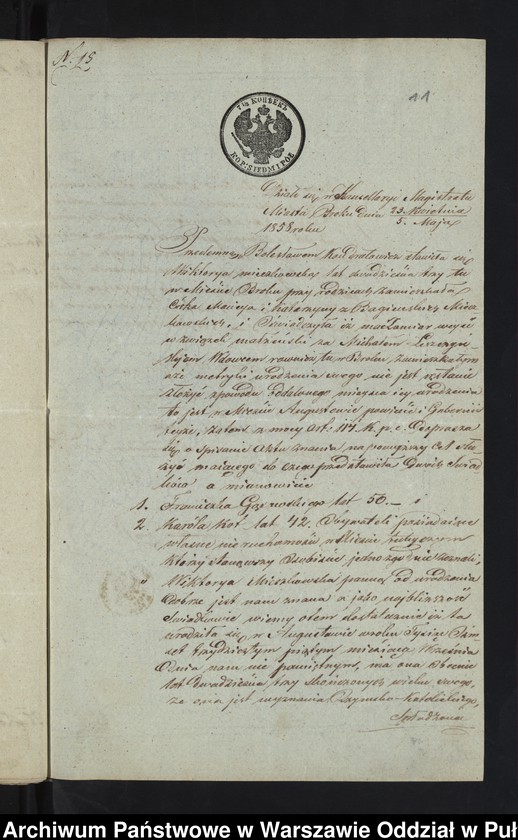 N. 15
11
7½ КОПѢЕКЪ
KOP: SIEDM I PÓŁ
Działo się w Kancellaryi Magistratu
Miasta Broku dnia 23. Kwietnia
5. Maja
1858 roku
Przedemną Bolesławem Kondratowicz stawiła się
Wiktorya Mieszkowska lat dwadzieścia trzy tu
w Mieście Broku przy rodzicach zamieszkała
Córka Macieja i Katarzyny z Bagieńskich Miesz
kowskich, i oświadczyła iż ma zamiar wejść
w związek małżeński za Michałem
Wdowcem również tu w Broku zamieszkałym
a że metryki urodzenia swego nie jest w stanie
złożyć z powodu oddalonego miejsca jej urodzenia
to jest w Mieście Augustowie powiecie i Gubernii
tejże, zatem z mocy Art: K. p. c. uprasza
się o spisanie Aktu znania na powyższy cel słu
żyć mającego do czego przedstawiła dwóch świad
ków a mianowicie
1. Franciszka lat 50. — i
2. Karola Kot lat 42. Obywateli posiadające
własne nieruchomości w Mieście tutejszem
którzy stanąwszy osobiście jednozgodnie zeznali,
" Wiktorya Mieszkowska panna od urodzenia
dobrze jest nam znana a jako najbliższość
świadkowie wiemy o tem dostatecznie iż ta
urodziła się w Augustowie w roku Tysiąc Ośm
set trzydziestym piątym miesiąca Września
dnia nam nie pamiętnym, ma ona obecnie
lat dwadzieścia trzy skończonych wieku swego,
że ona jest wyznania Rzymsko-Katolickiego,
Spłodzona
Archiwum Państwowe w Warszawie Oddział w Puł